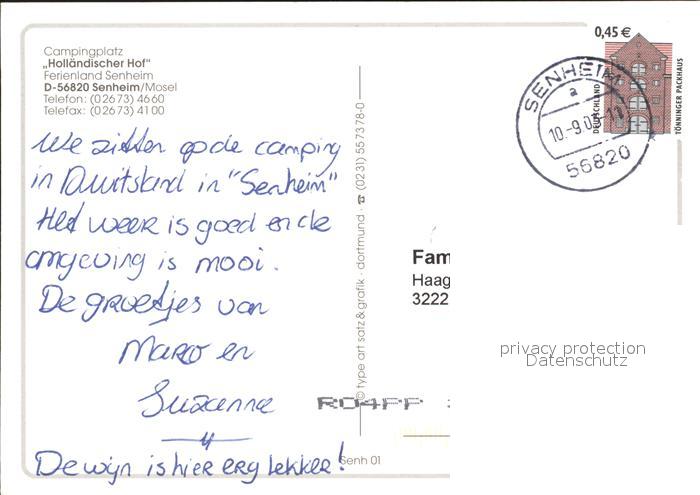 Campingplatz
„Holländischer Hof"
Ferienland Senheim
D-56820 Senheim/Mosel
Telefon: (02673) 4660
Telefax: (02673) 4100
We zitten op de camping
in Duitsland in "Senheim"
Het weer is goed en de
omgeving is mooi.
De groetjes van
Marco en
Suzanne
De wijn is hier erg lekker!
© type art satz & grafik · dortmund · ☎ (0231) 557378-0
Senh 01
0,45 €
DEUTSCHLAND
TÖNNINGER PACKHAUS
SENHEIM
a
56820
Fam
Haag
3222
privacy protection
Datenschutz